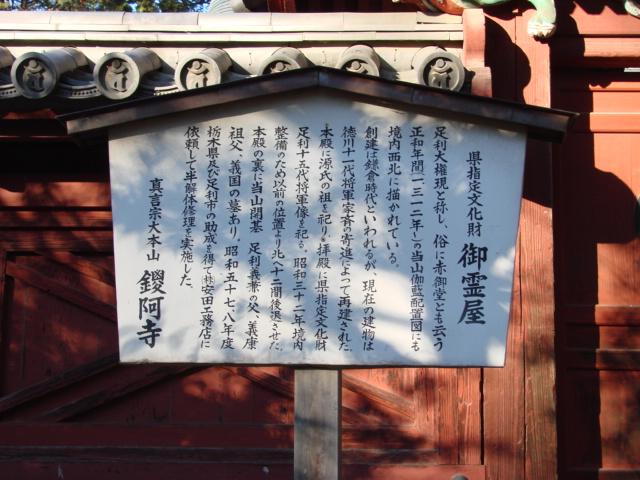 県指定文化財 御霊屋
足利大権現と称し、俗に赤御堂とも云う
正和年間(一三一二年~)の当山伽藍配置図にも
境内西北に描かれている。
創建は鎌倉時代といわれるが、現在の建物は
徳川十一代将軍家斉の寄進によって再建された。
本殿に源氏の祖を祀り、拝殿に県指定文化財
足利十五代将軍像を祀る。昭和三十二年境内
整備のため以前の位置より北へ十二間後退させた。
本殿の裏に当山開基 足利義兼の父、義康
祖父、義国の墓あり。昭和五十七、八年度
栃木県及び足利市の助成を得て㈱安田工務店に
依頼して半解体修理を実施した。
真言宗大本山 鑁阿寺